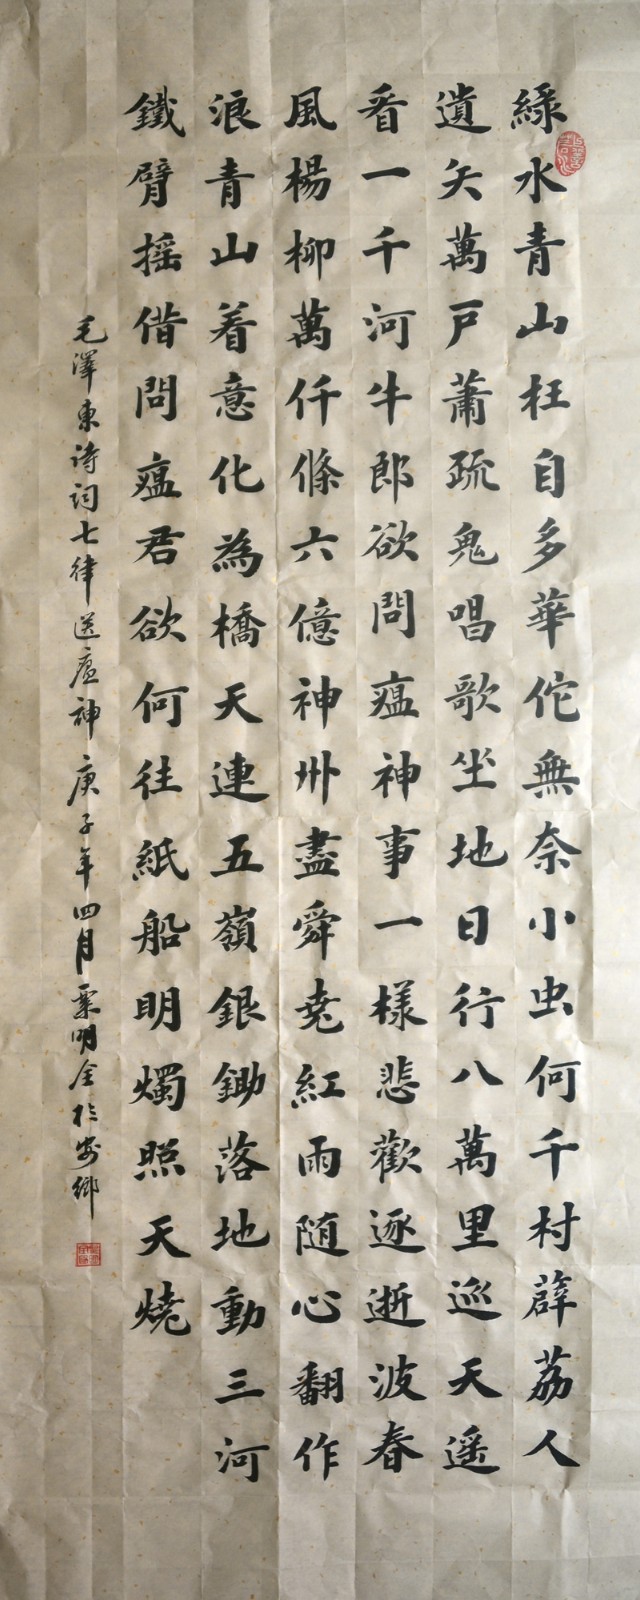 綠水青山枉自多華佗無奈小虫何千村薜荔人
遺矢萬戸蕭疏鬼唱歌坐地日行八萬里巡天遥
看一千河牛郎欲問瘟神事一樣悲歡逐逝波春
風楊柳萬仟條六億神州盡舜堯紅雨随心翻作
浪青山着意化為橋天連五嶺銀鋤落地動三河
鐵臂摇借問瘟君欲何往紙船明燭照天燒
毛澤東诗词七律送瘟神庚子年四月明全於安鄉